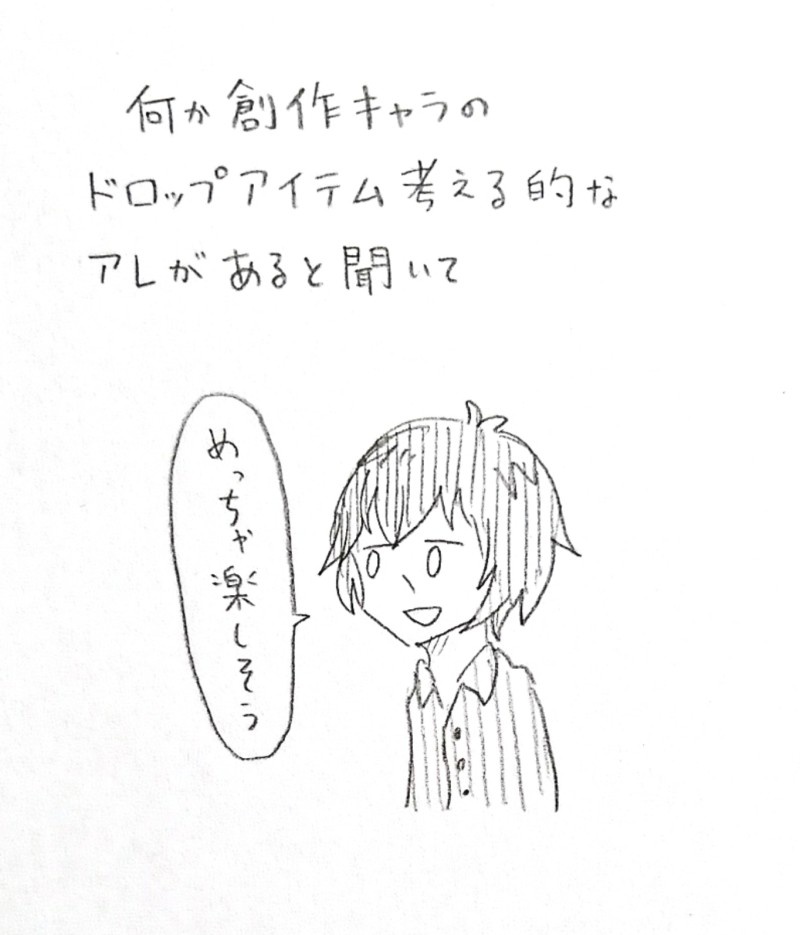 何か創作キャラの
ドロップアイテム考える的な
アレがあると聞いて
めっちゃ楽しそう